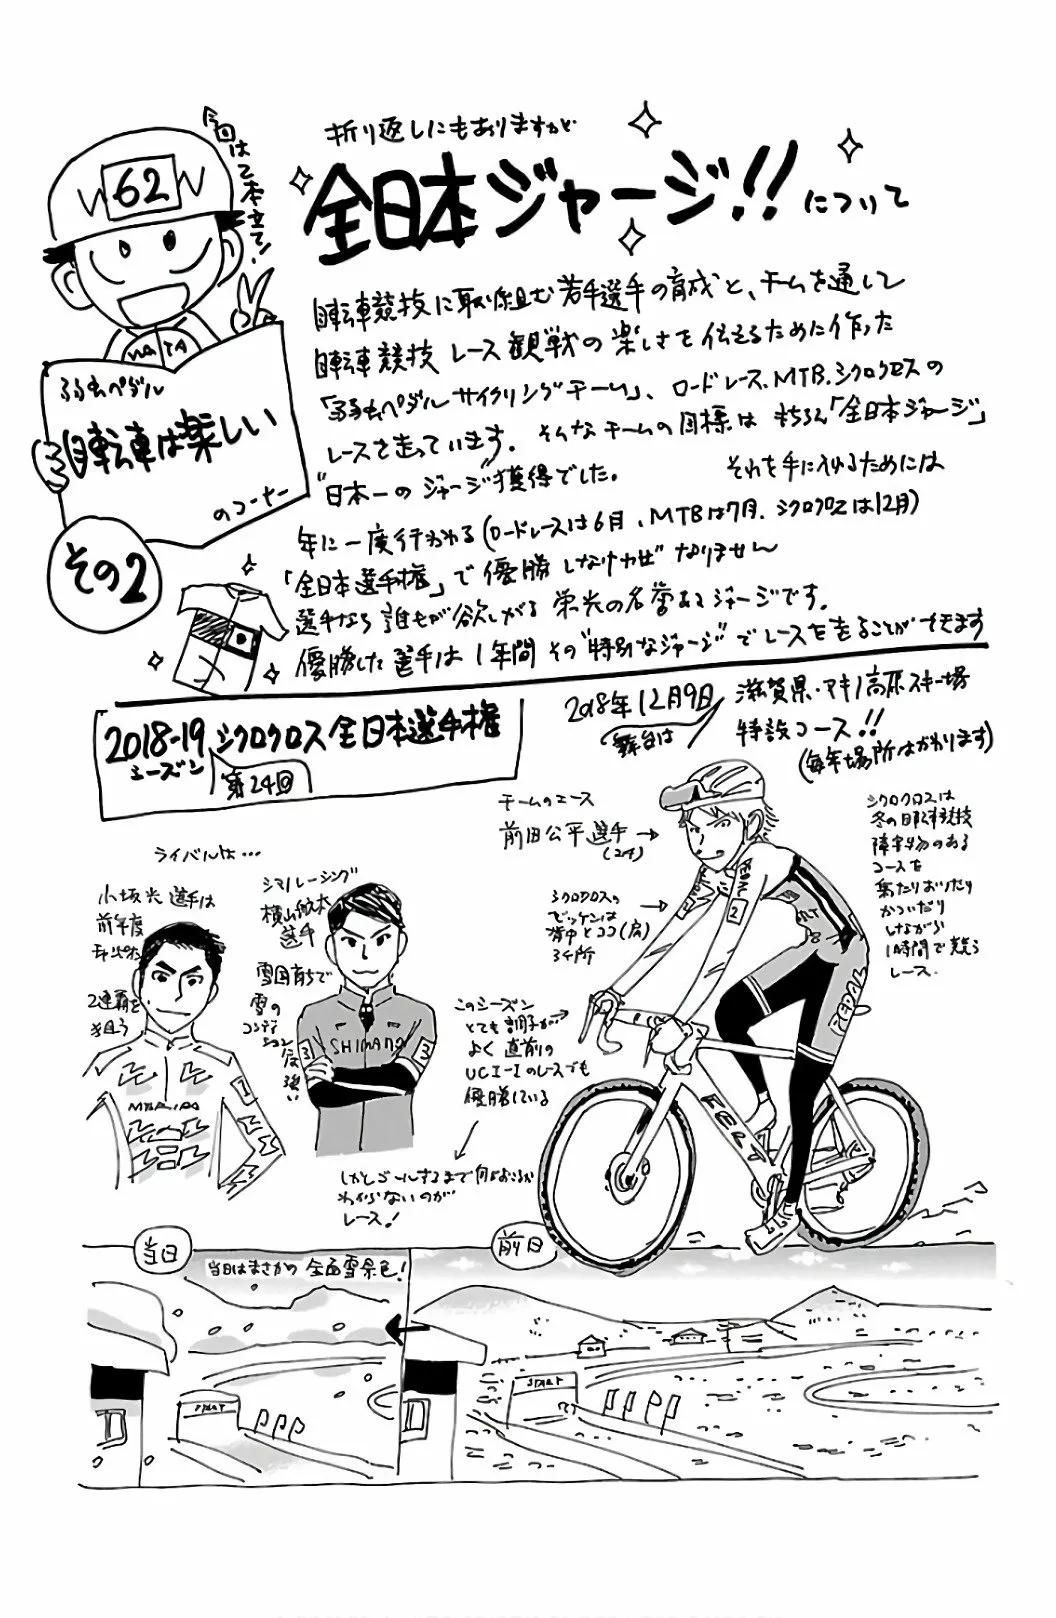 今回は2本立て!
62
WATA
弱虫ペダル
自転車は楽しい
のコーナー
その2
折り返しにもありますが
全日本ジャージ!!について
自転車競技に取り組む若手選手の育成と、チームを通して
自転車競技レース観戦の楽しさを伝えるために作った
「弱虫ペダルサイクリングチーム」、ロードレース、MTB、シクロクロスの
レースを走っています。そんなチームの目標はもちろん「全日本ジャージ」
"日本一のジャージ"獲得でした。 それを手に入れるためには
年に一度行われる(ロードレースは6月、MTBは7月、シクロクロスは12月)
「全日本選手権」で優勝しなければなりません
選手なら誰もが欲しがる栄光の名誉あるジャージです。
優勝した選手は1年間その"特別なジャージ"でレースを走ることができます
2018-19シクロクロス全日本選手権
シーズン
第24回
2018年12月9日
舞台は
滋賀県・マキノ高原スキー場
特設コース!!
(毎年場所はかわります)
チームのエース
前田公平選手→
(24)
シクロクロスは
冬の自転車競技
障害物のある
コースを
乗ったりおりたり
かついだり
しながら
1時間で競う
レース.
シクロクロスの
ゼッケンは
背中とココ(肩)
3ヶ所
ライバルは…
小坂光選手は
前年度
チャンピオン
2連覇を
狙う
シマノレーシング
横山航太
選手
雪国育ちで
雪の
コンディ
ション
に強い
このシーズン
とても調子が
よく直前の
UCI-1のレースでも
優勝している
しかしゴールするまで何がおこるか
わからないのが
レース!
PEDAL
2
FELT
PEDAL
FELT
SHIMANO
3
3
MERIDA
1
当日
当日はまさかの全面雪景色!
前日
START
START